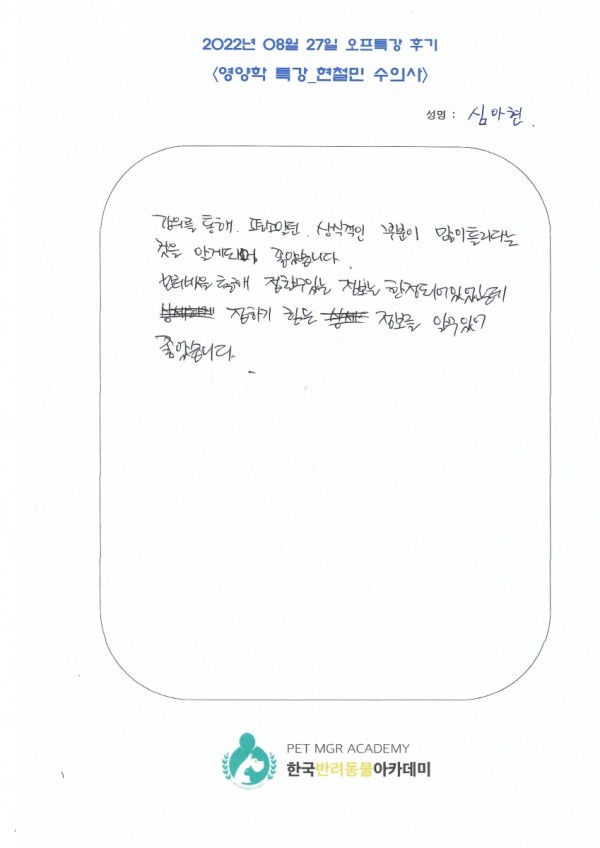 2022년 08월 27일 오프특강 후기
<영양학 특강_현철민 수의사>
성명 : 심아현.
강의를 통해. 상식적인 부분이 많이틀리다는
것을 알게되며 좋았습니다.
통해 접할수있는 정보는 한정되어있었는데
접하기 힘든 정보를 알수있어
좋았습니다.
PET MGR ACADEMY
한국반려동물아카데미